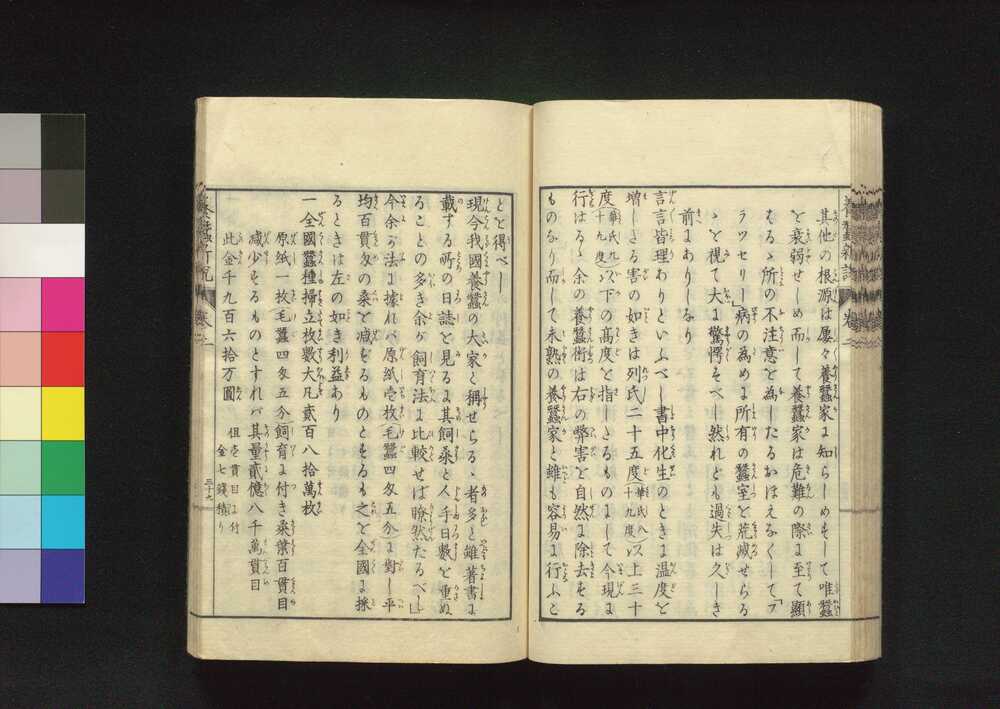 其他の根源は屡々養蠶家に知らしめずして唯蠶
を衰弱せしめ而して養蠶家は危難の際に至て顕
るゝ所の不注意を為したるおぼえなくして「フ
ラツセリー」病の為めに所有の蠶室を荒滅せらる
ゝを視て大に驚愕すべし然れども過失は久しき
前にありしなり
言言皆理ありといふべし書中化生のときに温度を
増しゝ害の如きは列氏二十五度(華氏八十九度)以上三十
度(華氏九十九度)以下の高度を指しゝものにして今現に
行はるゝ余の養蠶術は右の弊害を自然に除去する
ものなり而して未熟の養蠶家と雖も容易に行ふこ
とを得べし
現今我國養蠶の大家と稱せらるゝ者多しと雖著書に
載する所の日誌を見るに其飼桑と人手日數を重ぬ
ることの多き余が飼育法に比較せば瞭然たるべし
今余が法に據れバ原紙壱枚(毛蠶四匁五分)に對し平
均百貫匁の桑を減ずるものとするも之を全國に採
るときは左の如き利益あり
一全國蠶種掃立枚數大凡貳百八拾萬枚
原紙一枚毛蠶四匁五分飼育に付き桑葉百貫目
減少するものとすれバ其量貳億八千萬貫目
此金千九百六拾万圓
但壱貫目に付
金七錢積り